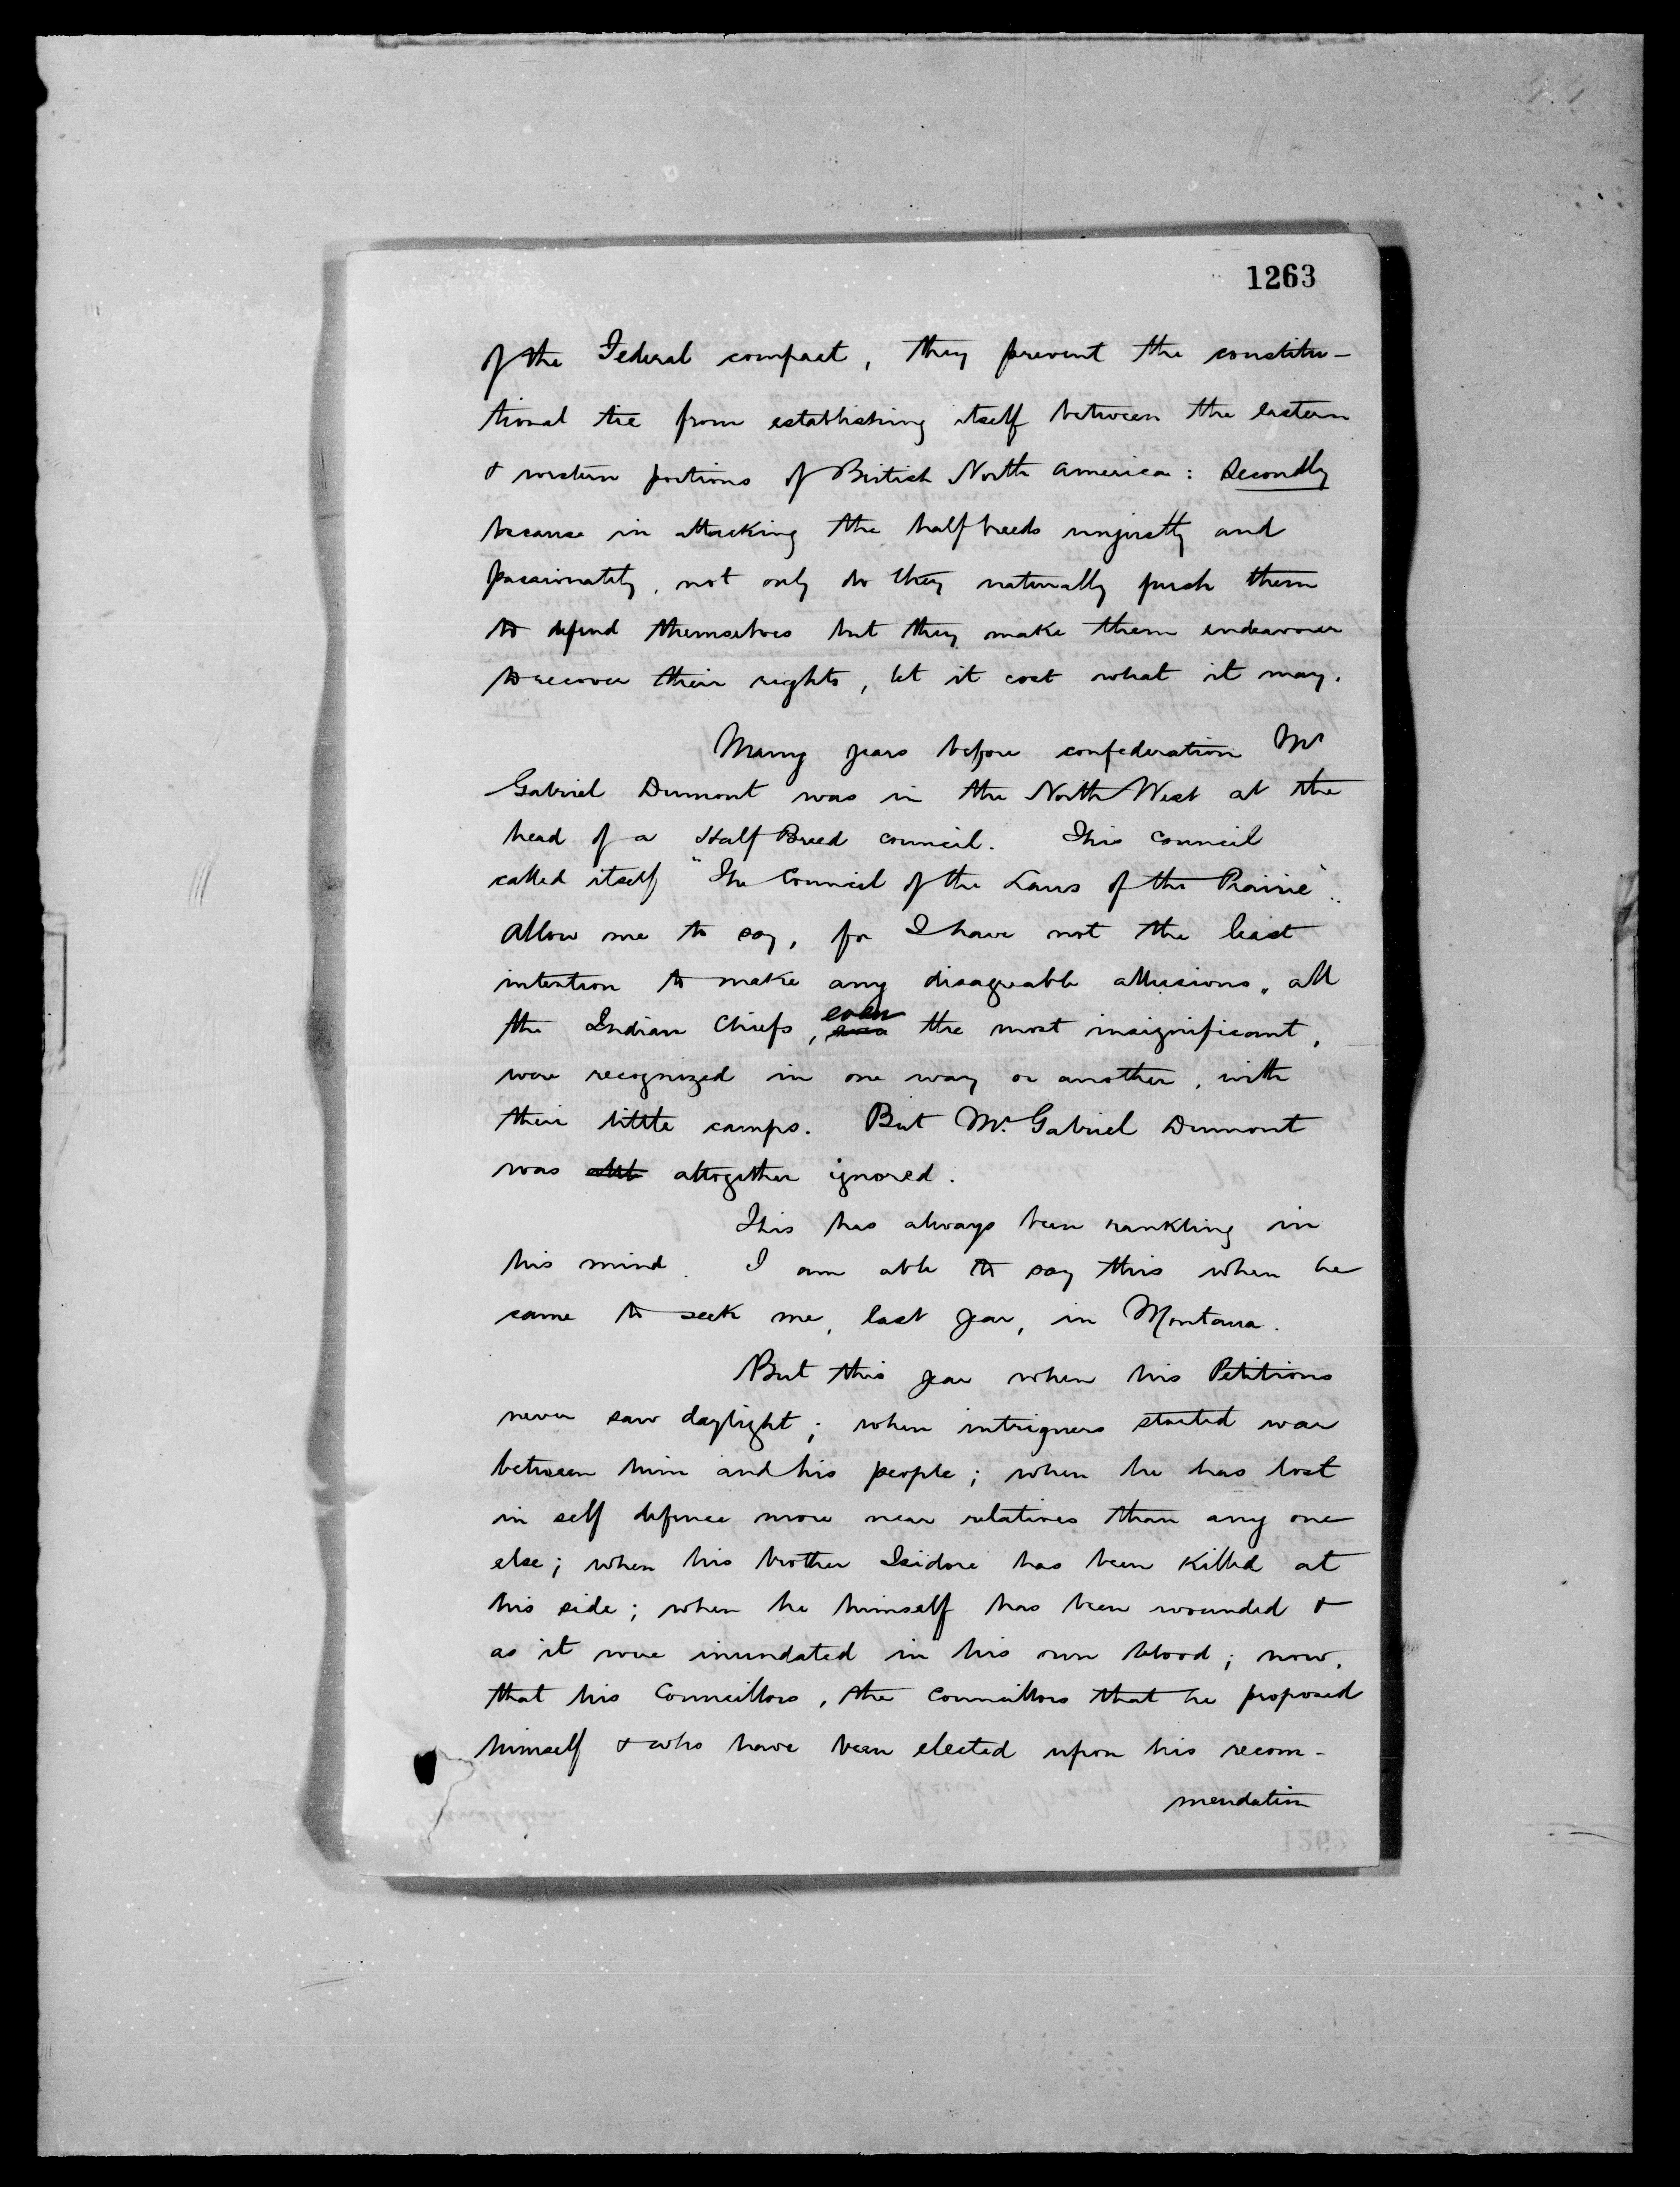 1263
of the Federal compact, they prevent the constitu-
tional tie from establishing itself between the eastern
& western portions of British North America: Secondly
because in attacking the half breeds unjustly and
passionately, not only do they naturally push them
to defend themselves but they make them endeavour
to recover their rights, let it cost what it may.
Many years before confederation Mr
Gabriel Dumont was in the North West at the
head of a Half Breed council. This council
called itself "The Council of the Laws of the Prairie".
Allow me to say, for I have not the least
intention to make any disagreable allusions, all
the Indian Chiefs, even the most insignificant,
were recognized in one way or another, with
their little camps. But Mr. Gabriel Dumont
was altogether ignored.
This has always been rankling in
his mind. I am able to say this when he
came to seek me, last year, in Montana.
But this year when his Petitions
never saw daylight; when intriguers started war
between him and his people; when he has lost
in self defence more near relatives than any one
else; when his brother Isidore has been killed at
his side; when he himself has been wounded &
as it were inundated in his own blood; now,
that his Councillors, the Councillors that he proposed
himself & who have been elected upon his recom-
mendation